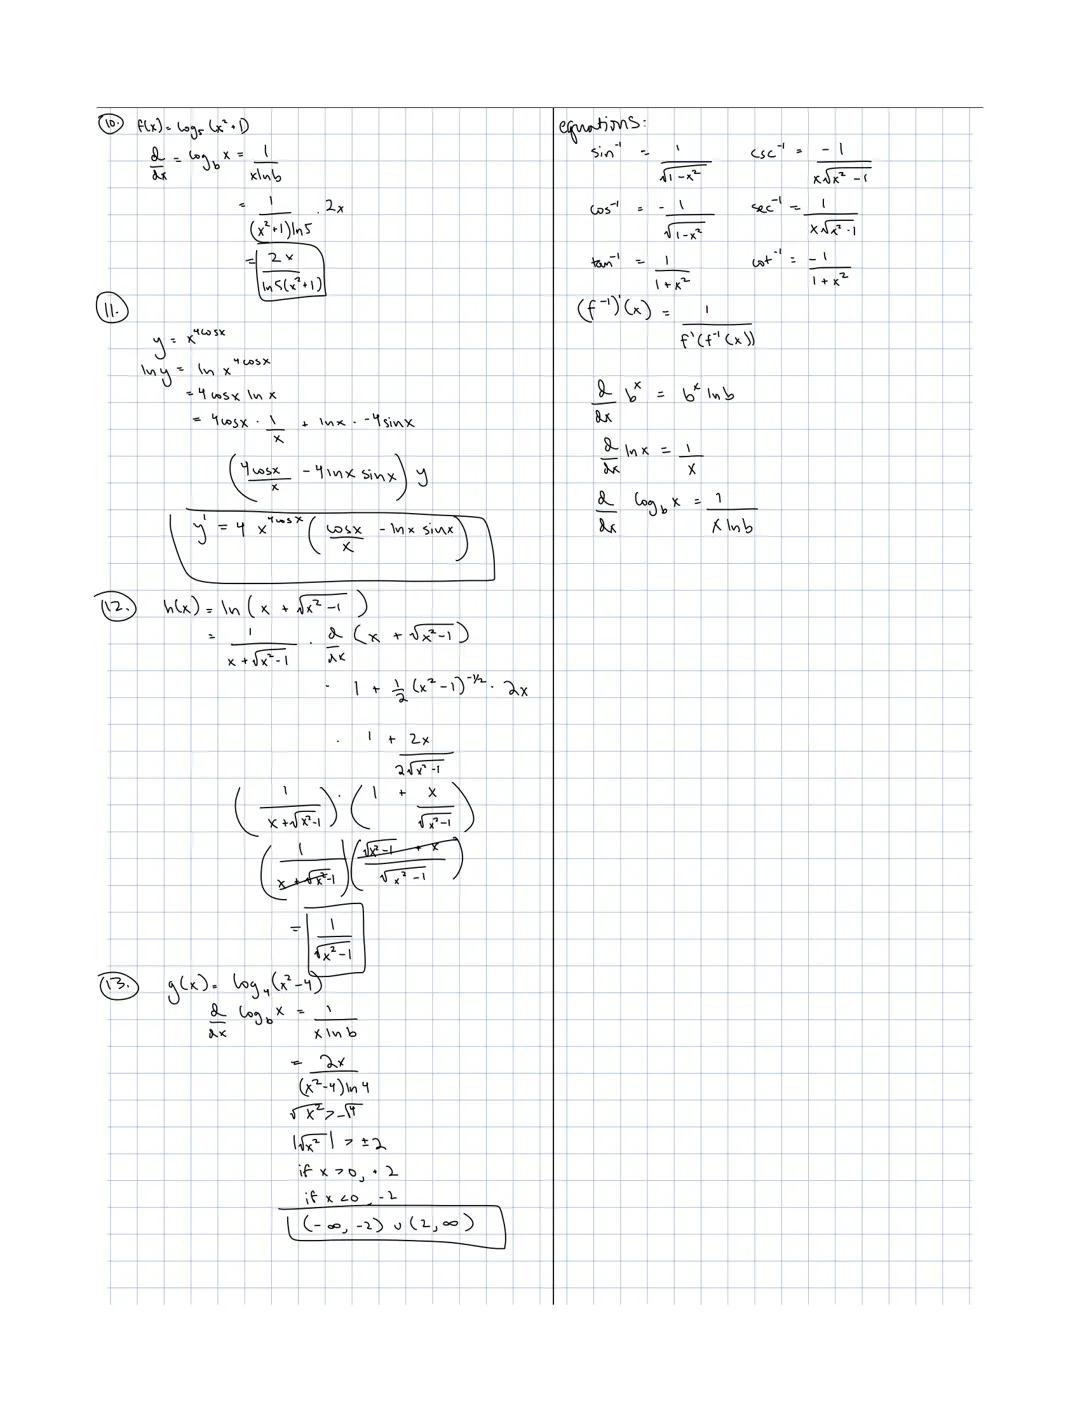 10. f(x) = log₅ (x² + 1)
d/dx = log_b x = 1/(x ln b)
= 1/((x²+1) ln 5) · 2x
= 2x/(ln 5 (x²+1))
11.
y = x^(4cosx)
ln y = ln x^(4cosx)
= 4 cosx ln x
= 4cosx · 1/x + lnx · -4sinx
(4cosx/x - 4lnx sinx) y
y' = 4 x^(4cosx) (cosx/x - lnx sinx)
12. h(x) = ln (x + √(x²-1))
= 1/(x + √(x²-1)) · d/dx (x + √(x²-1))
· 1 + 1/2 (x²-1)^(-1/2) · 2x
· 1 + 2x/(2√(x²-1))
(1/(x+√(x²-1))) · (1 + x/√(x²-1))
(1/(x+√(x²-1))) ((√(x²-1) + x)/√(x²-1))
= 1/√(x²-1)
13. g(x) = log₄ (x²-4)
d/dx log_b x = 1/(x ln b)
= 2x/((x²-4) ln 4)
√x² > √4
|√x²| > ±2
if x > 0, + 2
if x < 0, -2
(-∞, -2) ∪ (2, ∞)
equations:
sin⁻¹ = 1/√(1-x²) csc⁻¹ = -1/(x√(x²-1))
cos⁻¹ = -1/√(1-x²) sec⁻¹ = 1/(x√(x²-1))
tan⁻¹ = 1/(1+x²) cot⁻¹ = -1/(1+x²)
(f⁻¹)'(x) = 1/(f'(f⁻¹(x)))
d/dx b^x = b^x ln b
d/dx ln x = 1/x
d/dx log_b x = 1/(x ln b)